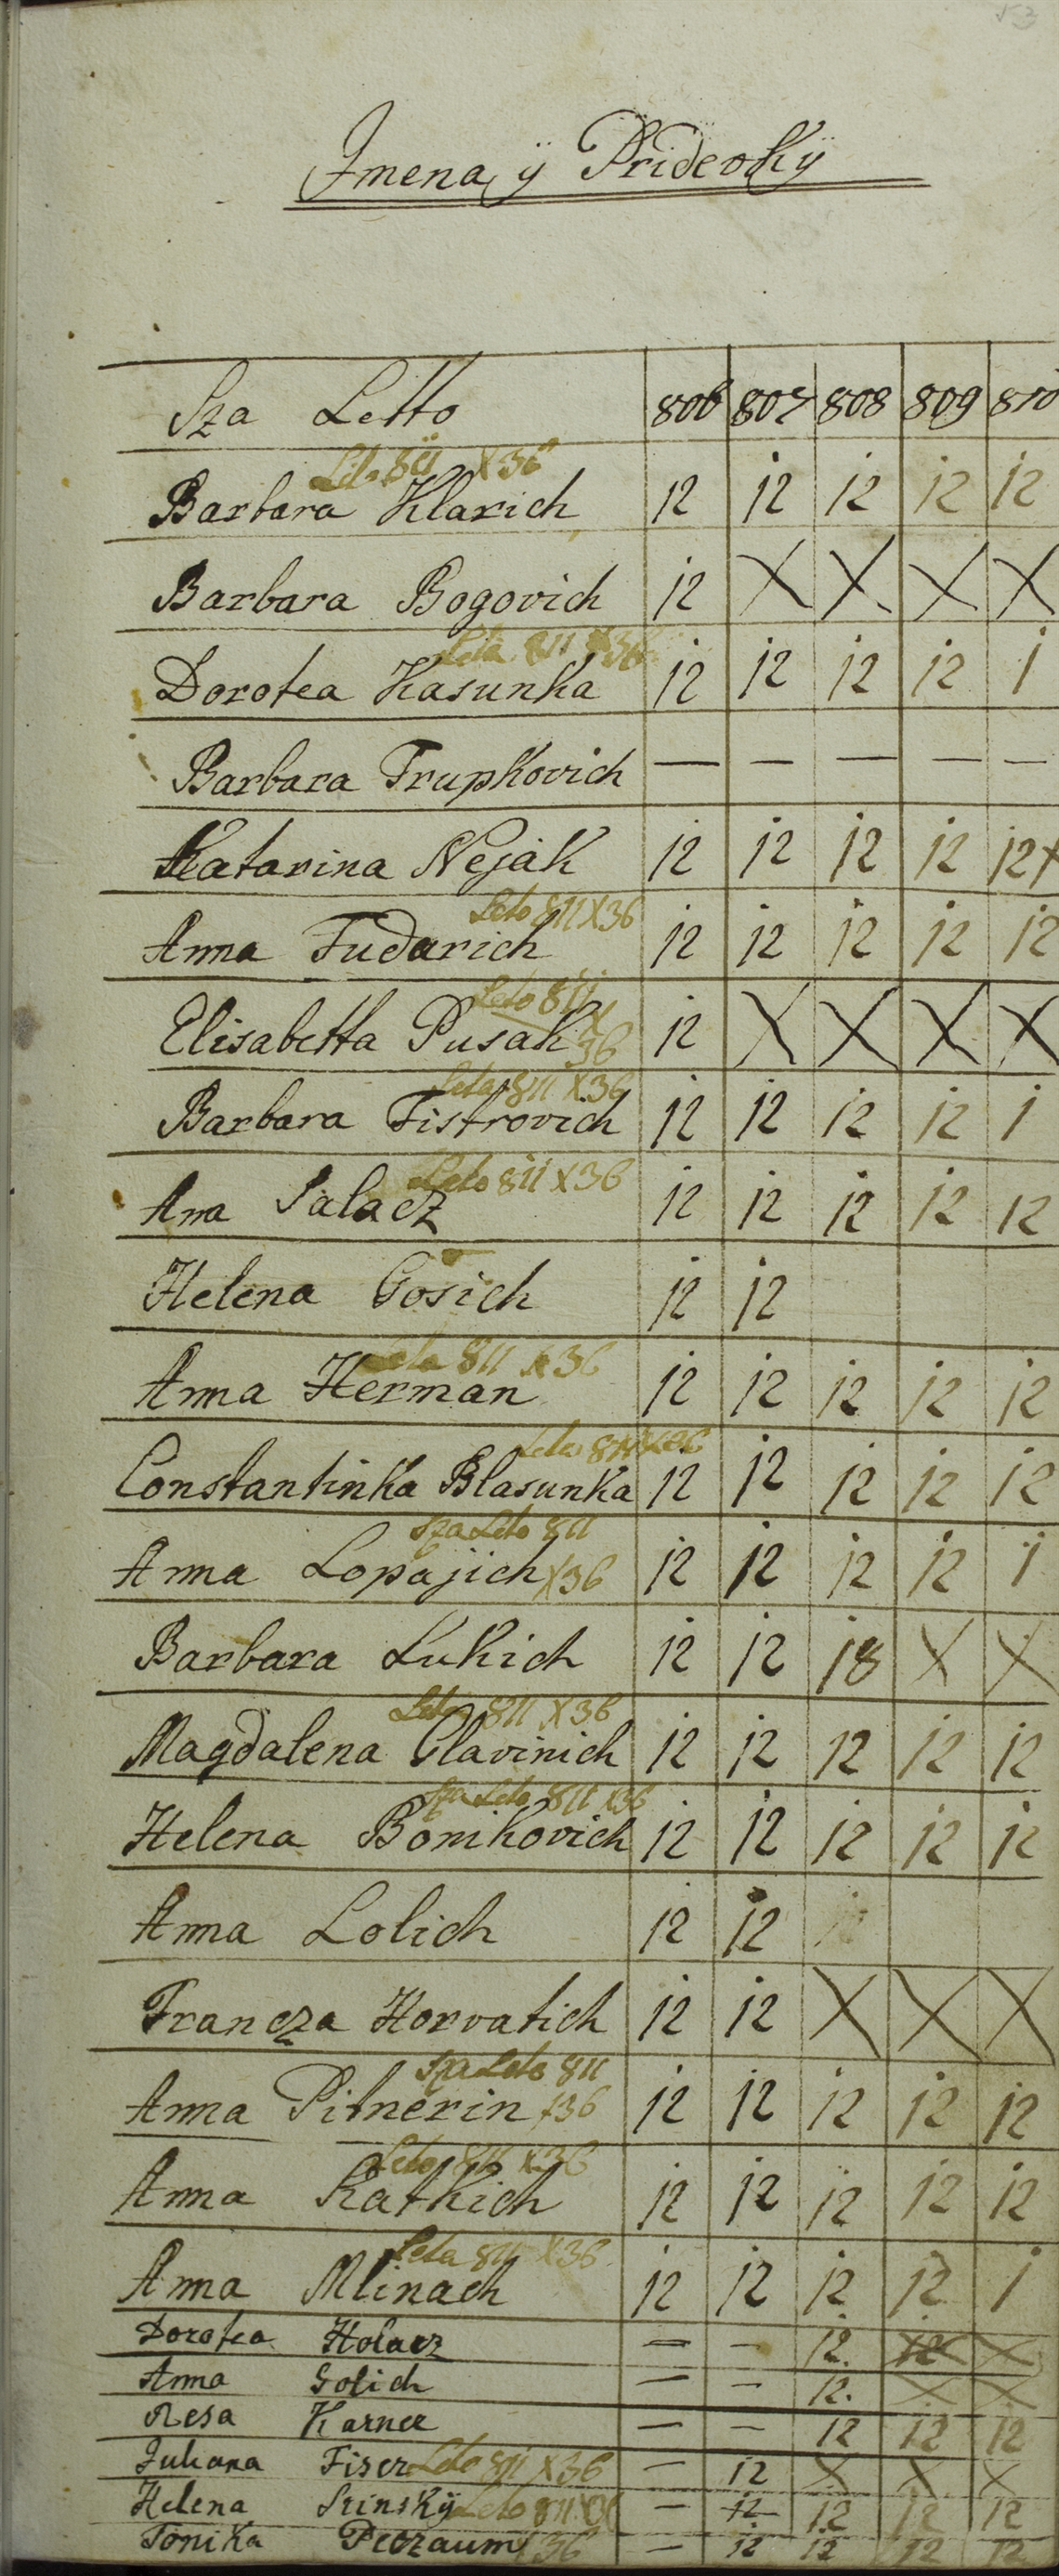 Imena ÿ Pridevkÿ
Sza Letto 806 807 808 809 810
Leto 811 X 36
Barbara Klarich 12 12 12 12 12
Barbara Bogovich 12 X X X X
Leta 811 X 36
Dorotea Kasunka 12 12 12 12 1
Barbara Trupkovich — — — — —
Katarina Nejak 12 12 12 12 12 x
Leto 811 X 36
Anna Fudarich 12 12 12 12 12
Leto 811 X
Elisabetta Pusak 36 12 X X X X
Leta 811 X 36
Barbara Fistrovich 12 12 12 12 1
Leto 811 X 36
Ana Salacz 12 12 12 12 12
Helena Gosich 12 12
Leta 811 X 36
Anna Herman 12 12 12 12 12
Leto 811 X 36
Constantinka Blasunka 12 12 12 12 12
Sza Leto 811
Anna Lopajich X 36 12 12 12 12 1
Barbara Lukich 12 12 18 X X
Leto 811 X 36
Magdalena Glavinich 12 12 12 12 12
Sza Leto 811 X 36
Helena Bonikovich 12 12 12 12 12
Anna Lolich 12 12
Francza Horvatich 12 12 X X X
Sza Leto 811
Anna Pitnerin X 36 12 12 12 12 12
Leto 811 X 36
Anna Ratkich 12 12 12 12 12
Leta 811 X 36
Anna Mlinach 12 12 12 12 1
Dorotea Holacz — — 12. 12 X
Anna Golich — — 12. X X
Resa Karner — — 12 12 12
Juliana Fiser Leto 811 X 36 — 12 X X X
Helena Srinskÿ Leto 811 X 36 — 12 12 12 12
Tonika Petzaum X 36 — 12 12 12 12